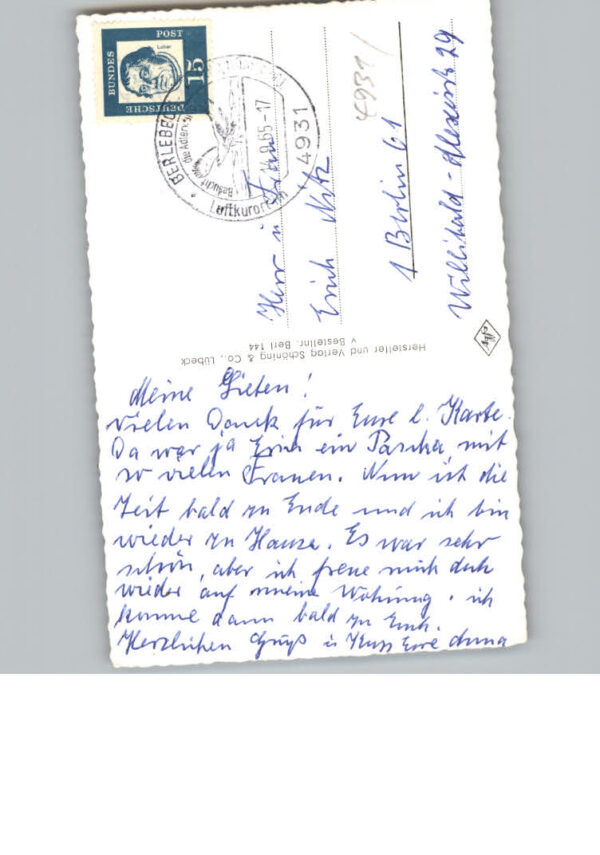 DEUTSCHE
BUNDES
POST
15
Luther
BERLEBECK
Die Adler
Besucht
14.9.65-17
4931
Luftkurort
4931
Herr u. Frau
Erich Nitz
1 Berlin 61
Willibald-Alexisstr. 29
Hersteller und Verlag Schöning & Co., Lübeck
v Bestellnr. Berl 144
Meine Lieben!
vielen Dank für Eure l. Karte.
Da war ja Erich ein Pascha, mit
so vielen Frauen. Nun ist die
Zeit bald zu Ende und ich bin
wieder zu Hause. Es war sehr
schön, aber ich freue mich doch
wieder auf meine Wohnung. ich
komme dann bald zu Euch.
Herzlichen Gruß u. Kuss Eure Anna